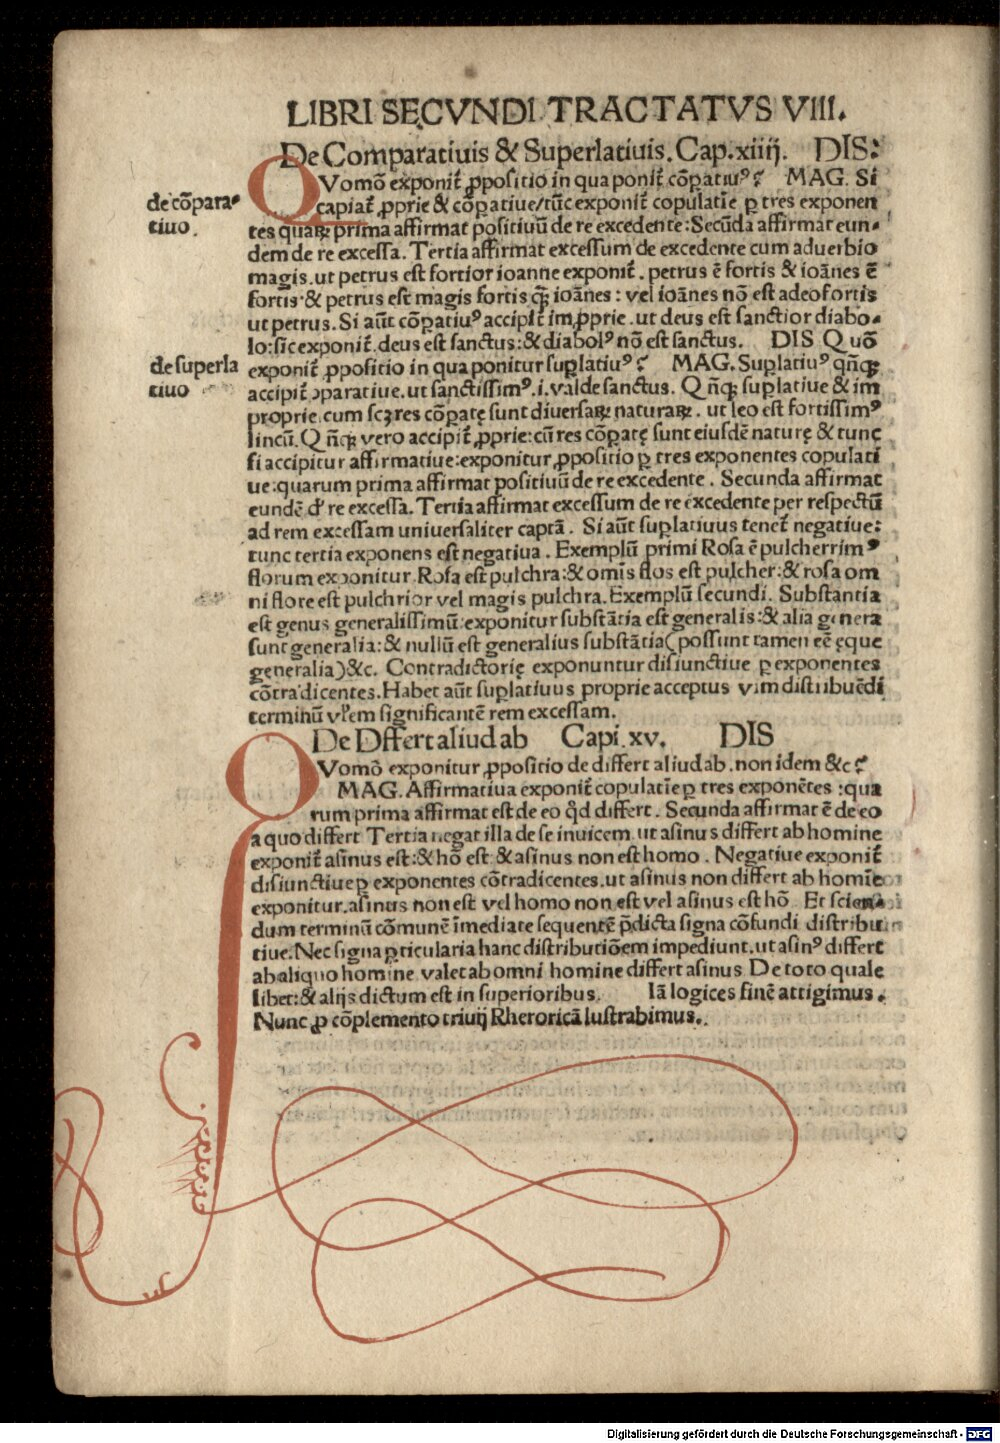 LIBRI SECVNDI TRACTATVS VIII.
De Comparatiuis & Superlatiuis. Cap. xiiij. DIS:
QVomō exponit̃ ꝓpositio in qua ponit̃ cōꝑatiuꝰ? MAG. Si
de cōpara-
tiuo.
capiat̃ ꝓprie & cōꝑatiue/tūc exponit̃ copulatīe ꝑ tres exponen
tes quaꝝ prima affirmat positiuū de re excedente: Secūda affirmat eun-
dem de re excessa. Tertia affirmat excessum de excedente cum aduerbio
magis. ut petrus est fortior ioanne exponit̃. petrus ē fortis & ioānes ē
fortis & petrus est magis fortis q̄ꝫ ioānes: vel ioānes nō est adeo fortis
ut petrus. Si aūt cōꝑatiuꝰ accipit̃ imꝓprie. ut deus est sanctior diabo-
lo: sic exponit̃. deus est sanctus: & diabolꝰ nō est sanctus. DIS Quō
de superla
tiuo
exponit̃ ꝓpositio in qua ponitur suꝑlatiuꝰ? MAG. Suꝑlatiuꝰ qn̄qꝫ
accipit̃ ꝯparatiue. ut sanctissimꝰ .i. valde sanctus. Qn̄qꝫ suꝑlatiue & im
proprie. cum scꝫ res cōꝑatę sunt diuersaꝝ naturaꝝ. ut leo est fortissimꝰ
lincū. Qn̄qꝫ vero accipit̃ ꝓprie: cū res cōꝑatę sunt eiusdē naturę & tunc
si accipitur affirmatiue: exponitur ꝓpositio ꝑ tres exponentes copulati
ue: quarum prima affirmat positiuū de re excedente. Secunda affirmat
eundē d' re excessa. Tertia affirmat excessum de re excedente per respectū
ad rem excessam uniuersaliter captā. Si aūt suꝑlatiuus tenet̃ negatiue:
tunc tertia exponens est negatiua. Exemplū primi Rosa ē pulcherrimꝰ
florum exponitur. Rosa est pulchra: & omīs flos est pulcher: & rosa om
ni flore est pulchrior vel magis pulchra. Exemplū secundi. Substantia
est genus generalissimū: exponitur substātia est generalis: & alia genera
sunt generalia: & nullū est generalius substātia (possunt tamen eē ęque
generalia) &c. Contradictorię exponuntur disiunctiue ꝑ exponentes
cōtradicentes. Habet aūt suꝑlatiuus proprie acceptus vim distribuēdi
terminū vl'em significantē rem excessam.
De Dffert aliud ab Capi. xv. DIS
QVomō exponitur ꝓpositio de differt aliud ab. non idem &c?
MAG. Affirmatiua exponit̃ copulatīe ꝑ tres exponētes: qua
rum prima affirmat est de eo qd̄ differt. Secunda affirmat ē de eo
a quo differt Tertia negat illa de se inuicem. ut asinus differt ab homine
exponit̃ asinus est: & hō est & asinus non est homo. Negatiue exponit̃
disiunctiue ꝑ exponentes cōtradicentes. ut asinus non differt ab homīe
exponitur. asinus non est vel homo non est vel asinus est hō. Et scien-
dum terminū cōmunē īmediate sequentē p̄dicta signa cōfundi distribu
tiue. Nec signa ꝑticularia hanc distributiōem impediunt. ut asinꝰ differt
ab aliquo homine valet ab omni homine differt asinus De toto quale
libet: & alijs dictum est in superioribus. Iā logices finē attigimus.
Nunc ꝓ cōplemento triuij Rhetoricā lustrabimus.
Digitalisierung gefördert durch die Deutsche Forschungsgemeinschaft - DFG